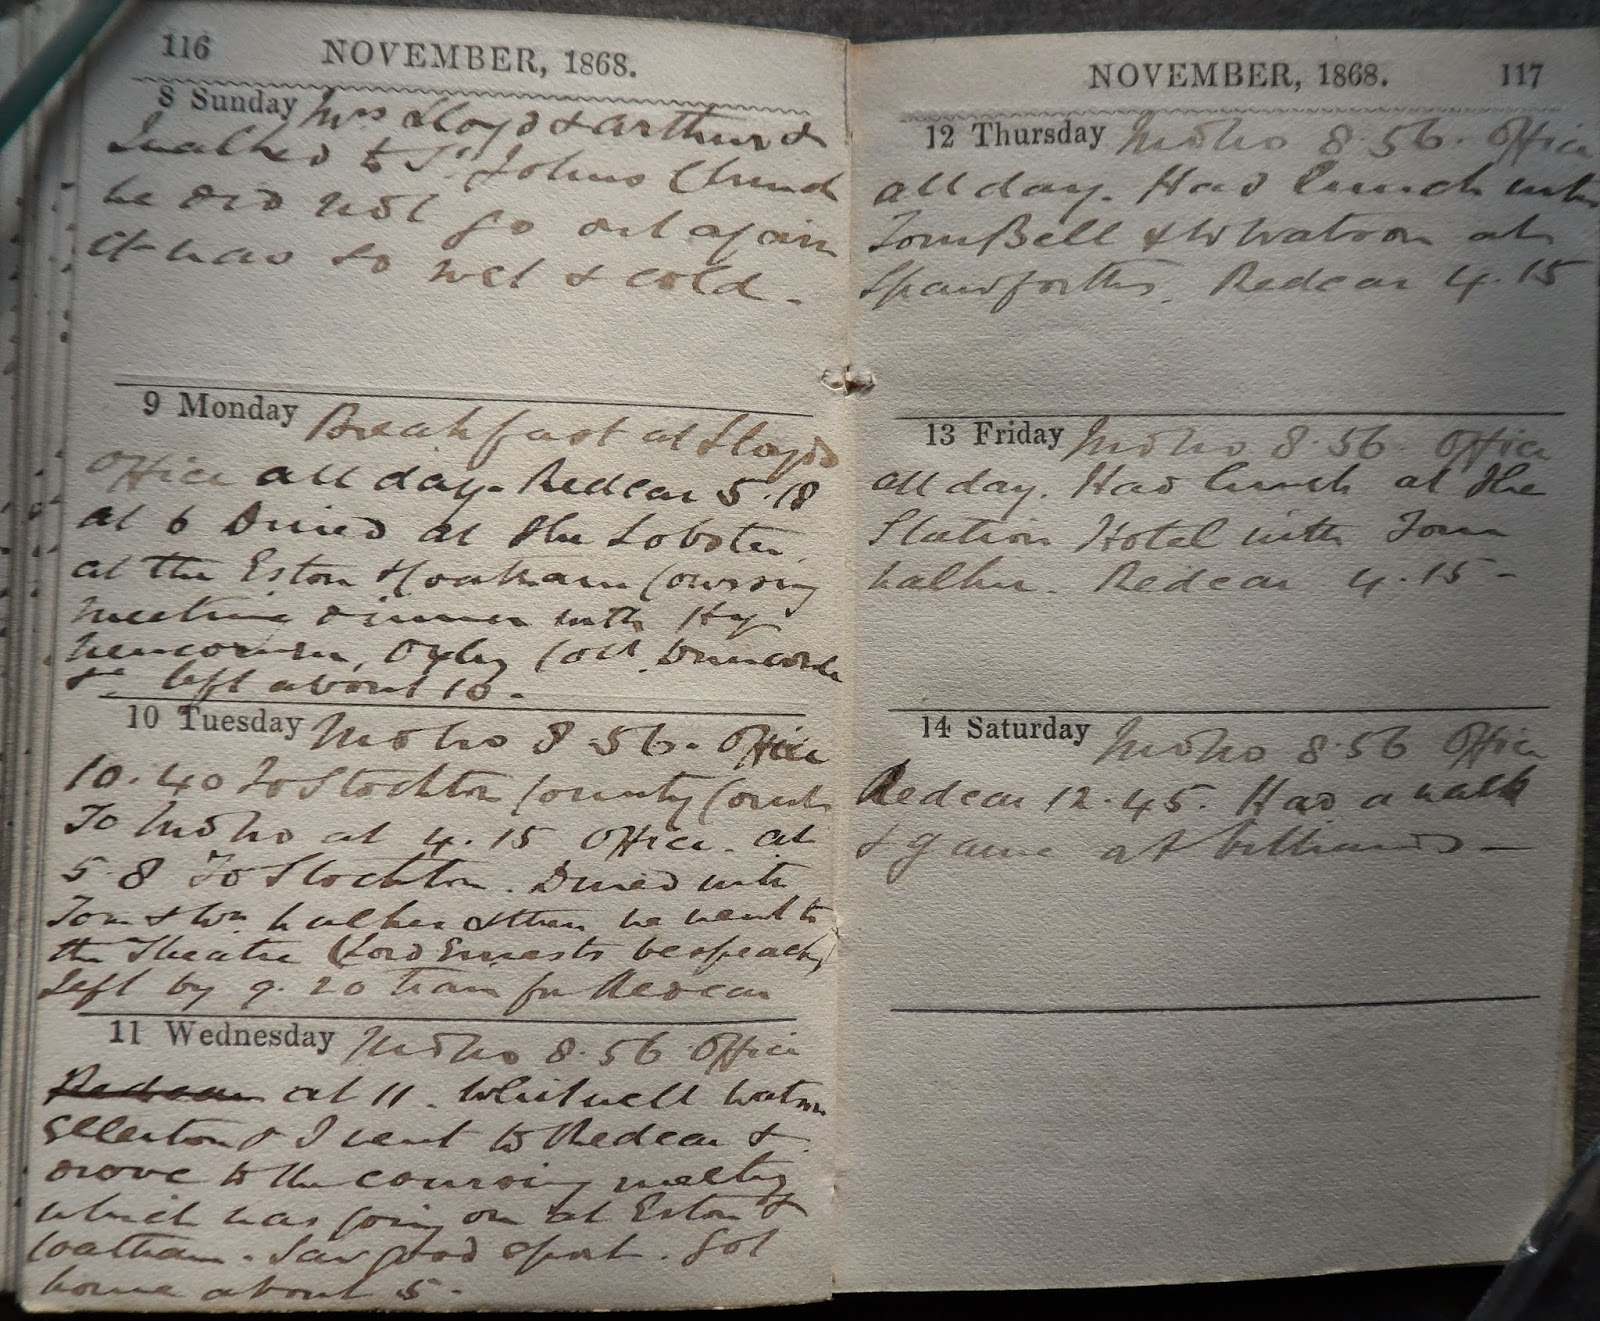 116 NOVEMBER, 1868.
8 Sunday Mrs Lloyd & Arthur &
I walked to St Johns Church
he did not go out again
it was so wet & cold.
9 Monday Breakfast at Lloyds
Office all day. Redcar 5.18
at 6 Dined at the Lobster
at the Eston & Coatham Coursing
meeting dinner with Hy
Newcomen, Oxley
&c left about 10.
10 Tuesday Mdbro 8.56. Office
10.40 To Stockton County Court
To Mdbro at 4.15 Office. at
5.8 To Stockton. Dined with
Tom & Wm Walker & then we went to
the Theatre (Lord Ernests bespeak)
Left by 9.20 train for Redcar
11 Wednesday Mdbro 8.56 Office
Redcar at 11. Whitwell Watson
Ellerton & I went to Redcar &
drove to the coursing meeting
which was going on at Eston &
Coatham. Saw good sport. Got
home about 5.
NOVEMBER, 1868. 117
12 Thursday Mdbro 8.56. Office
all day. Had lunch with
Tom Bell & W Watson at
Spawforths. Redcar 4.15
13 Friday Mdbro 8.56. Office
all day. Had lunch at the
Station Hotel with Tom
Walker. Redcar 4.15
14 Saturday Mdbro 8.56 Office
Redcar 12.45. Had a walk
& game at billiards